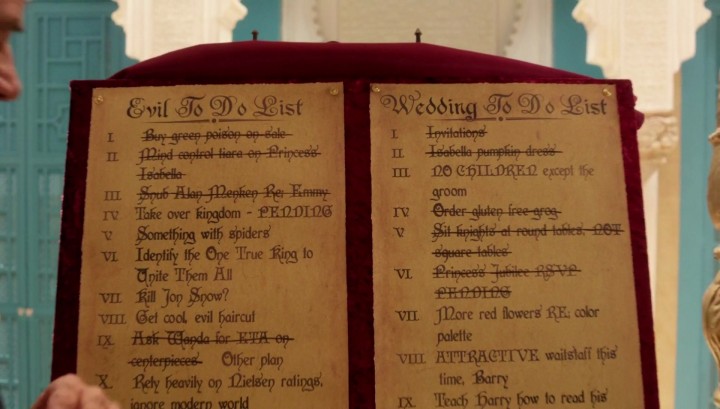 Evil To Do List
I. Buy green poison on sale
II. Mind control tiara on Princess
Isabella
III. Snub Alan Menken Re: Emmy
IV. Take over kingdom - PENDING
V. Something with spiders
VI. Identify the One True King to
Unite Them All
VII. Kill Jon Snow?
VIII. Get cool, evil haircut
IX. Ask Wanda for ETA on
centerpieces Other plan
X. Rely heavily on Nielsen ratings,
ignore modern world
Wedding To Do List
I. Invitations
II. Isabella pumpkin dress
III. NO CHILDREN except the
groom
IV. Order gluten free grog
V. Sit knights at round tables, NOT
square tables
VI. Princess Jubilee RSVP
PENDING
VII. More red flowers RE: color
palette
VIII. ATTRACTIVE waitstaff this
time, Barry
IX. Teach Harry how to read his